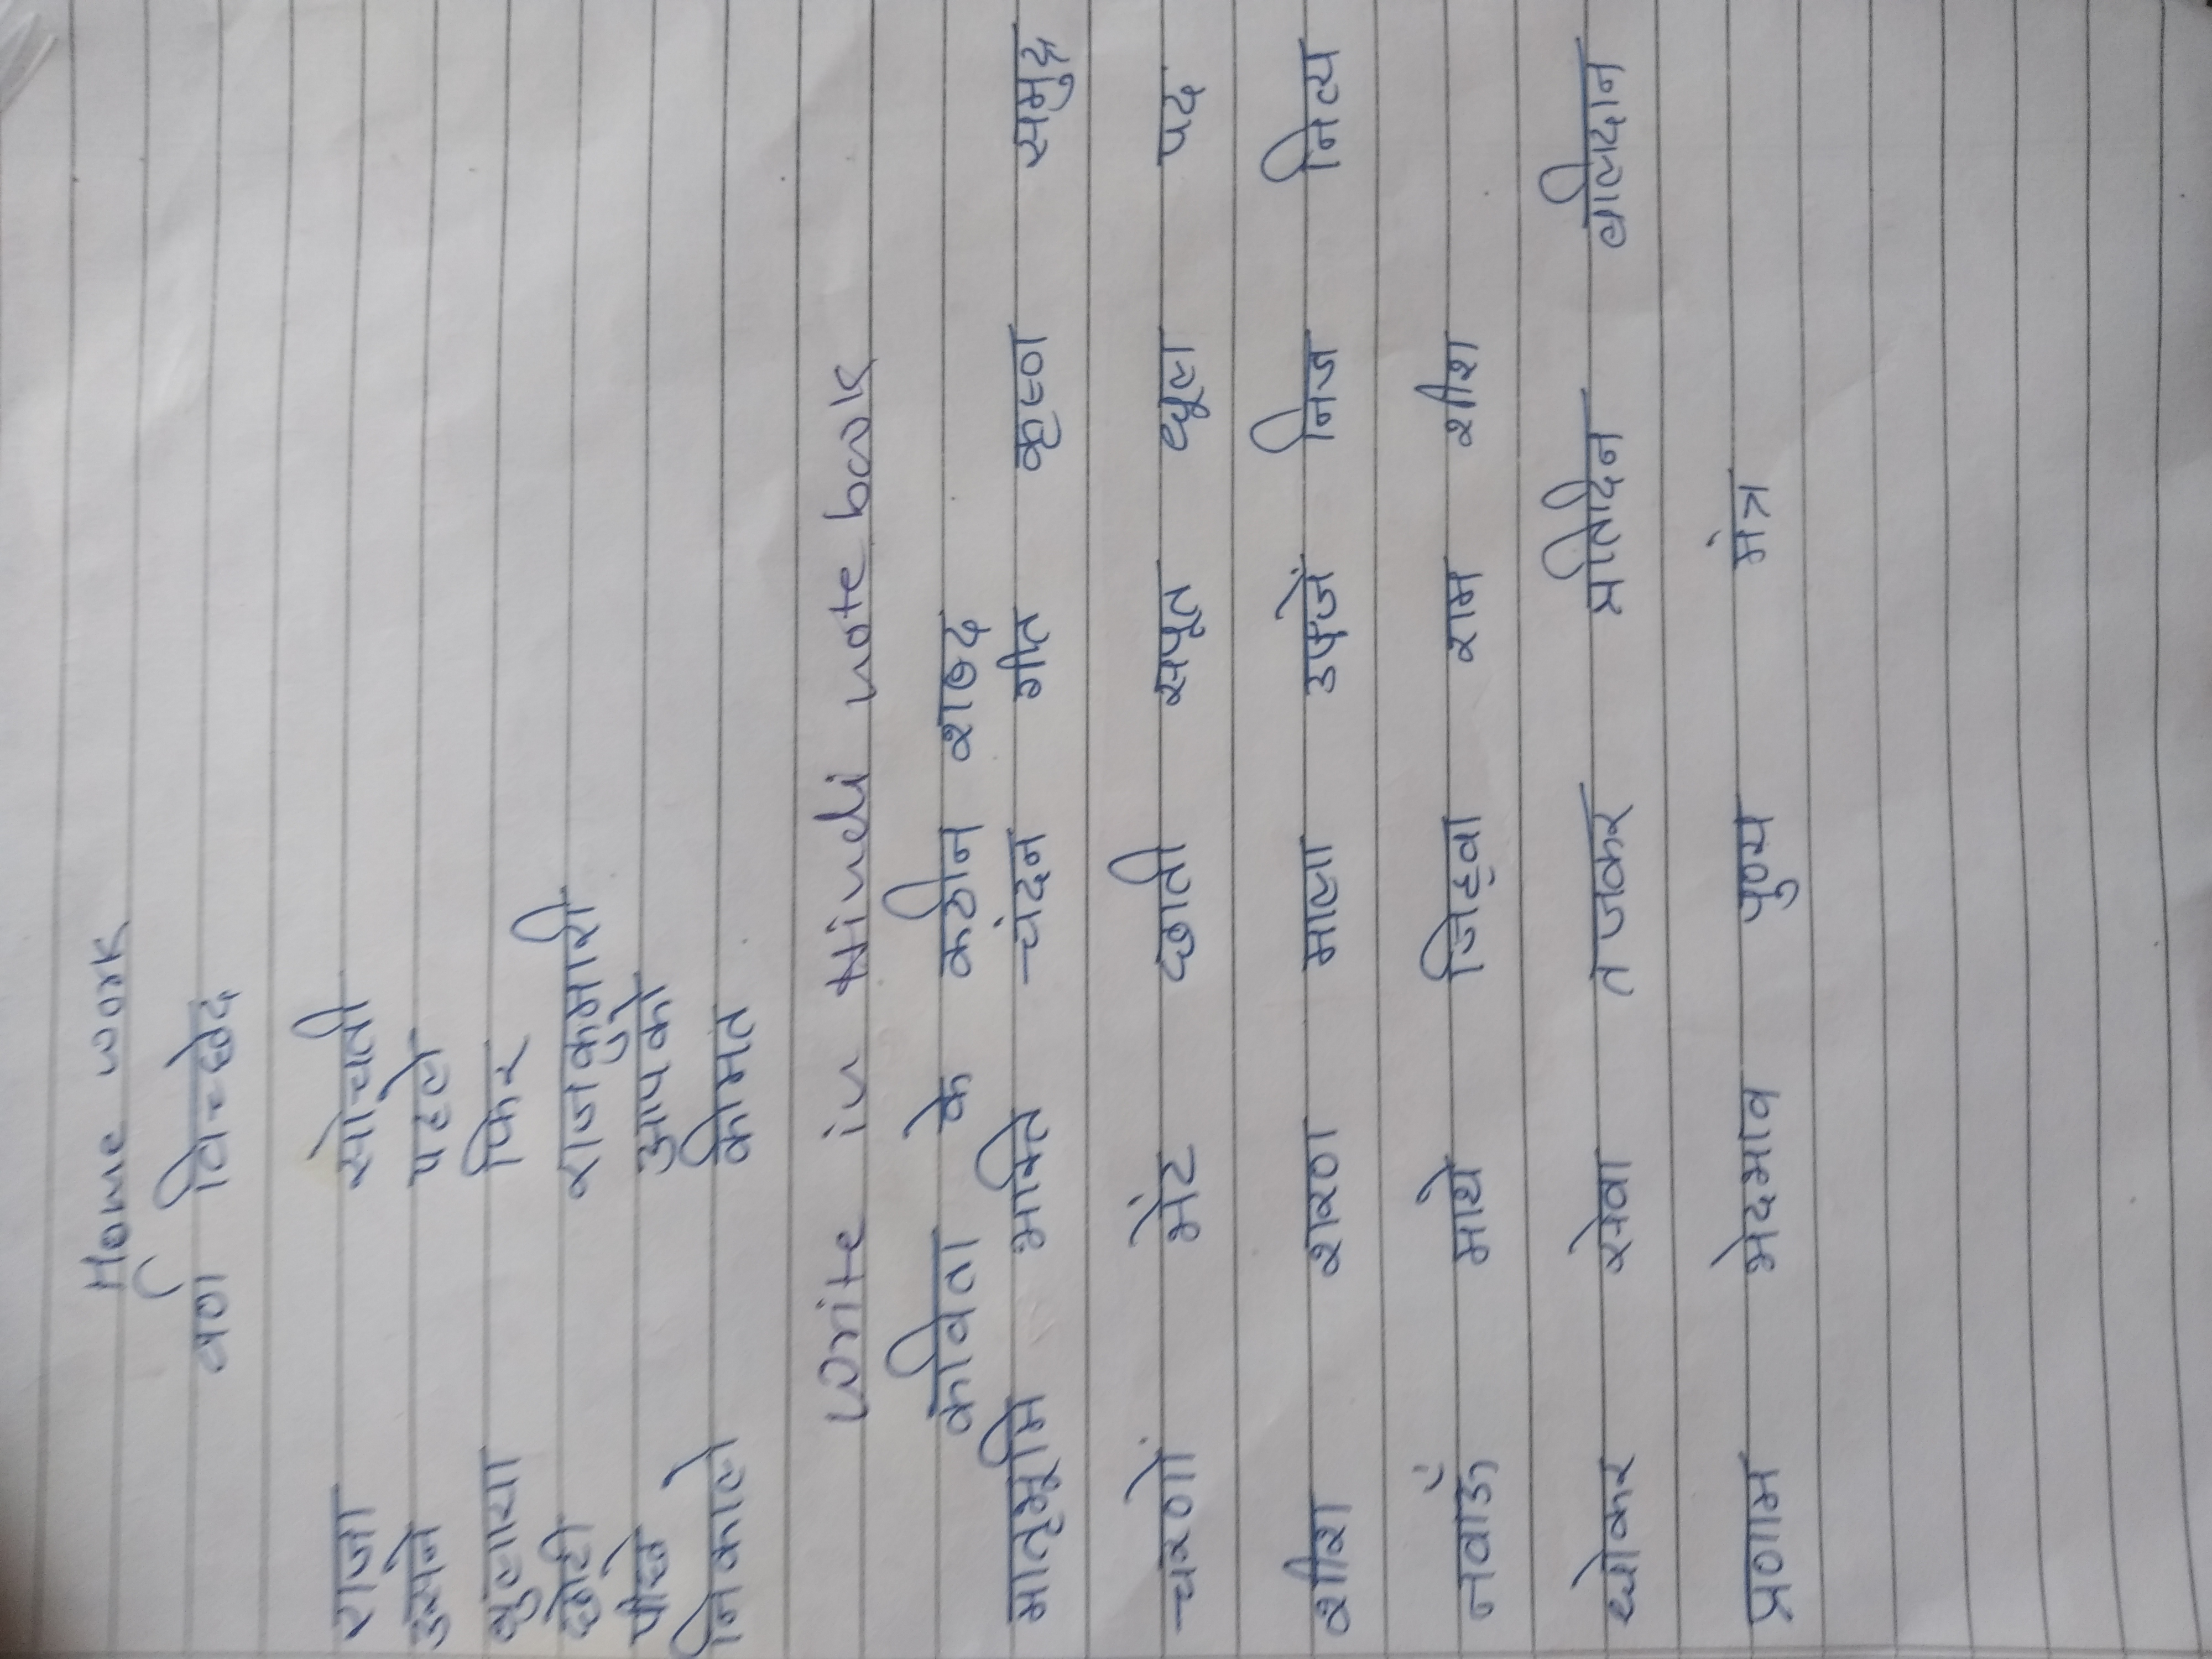 Home work
वर्ण विच्छेद
राजा सोचती
उसने पहले
बुलाया फिर
छोटी राजकुमारी
पीछे आपको
निकाले कीमत
Write in Hindi note book
कविता के कठीन शब्द
मातृभूमि भक्ति चंदन गीत कृष्ण समुद्र
चरणों भेंट छाती सपूत धूल पद
शीश शरण माला उपजें निज नित्य
नवाऊँ माथे जिह्वा राम शीश
धोकर सेवा तजकर प्रतिदिन बलिदान
प्रणाम भेदभाव पुण्य मंत्र